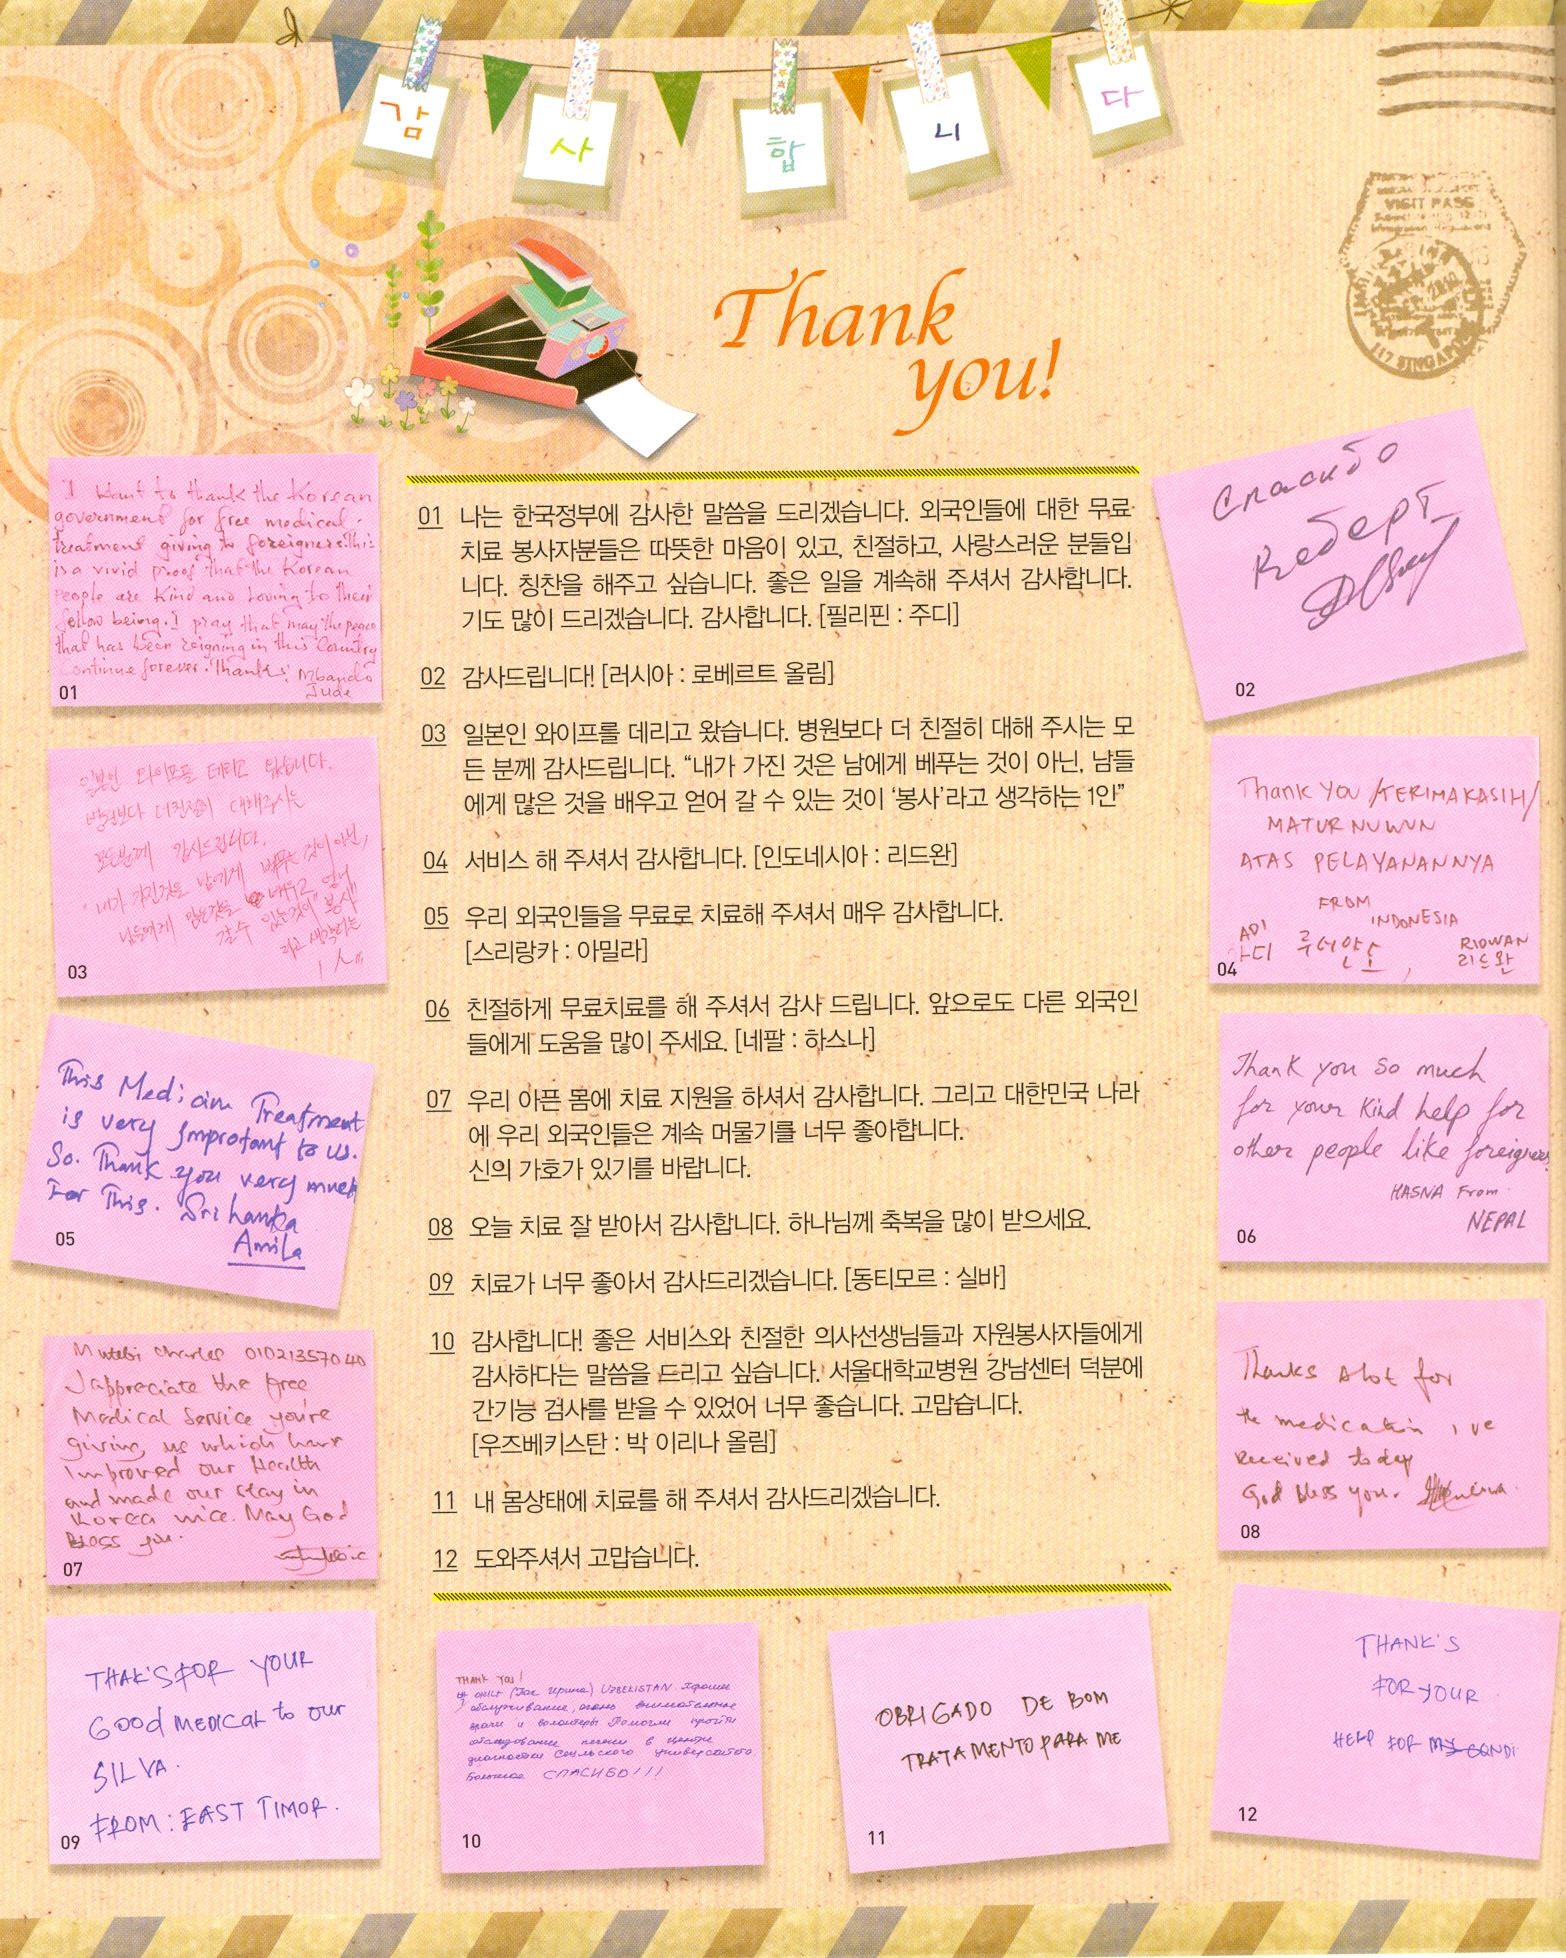 감사합니다
VISIT PASS
Thank
you!
01 나는 한국정부에 감사한 말씀을 드리겠습니다. 외국인들에 대한 무료
치료 봉사자분들은 따뜻한 마음이 있고, 친절하고, 사랑스러운 분들입
니다. 칭찬을 해주고 싶습니다. 좋은 일을 계속해 주셔서 감사합니다.
기도 많이 드리겠습니다. 감사합니다. [필리핀 : 주디]
02 감사드립니다! [러시아 : 로베르트 올림]
03 일본인 와이프를 데리고 왔습니다. 병원보다 더 친절히 대해 주시는 모
든 분께 감사드립니다. “내가 가진 것은 남에게 베푸는 것이 아닌, 남들
에게 많은 것을 배우고 얻어 갈 수 있는 것이 ‘봉사’라고 생각하는 1인”
04 서비스 해 주셔서 감사합니다. [인도네시아 : 리드완]
05 우리 외국인들을 무료로 치료해 주셔서 매우 감사합니다.
[스리랑카 : 아밀라]
06 친절하게 무료치료를 해 주셔서 감사 드립니다. 앞으로도 다른 외국인
들에게 도움을 많이 주세요. [네팔 : 하스나]
07 우리 아픈 몸에 치료 지원을 하셔서 감사합니다. 그리고 대한민국 나라
에 우리 외국인들은 계속 머물기를 너무 좋아합니다.
신의 가호가 있기를 바랍니다.
08 오늘 치료 잘 받아서 감사합니다. 하나님께 축복을 많이 받으세요.
09 치료가 너무 좋아서 감사드리겠습니다. [동티모르 : 실바]
10 감사합니다! 좋은 서비스와 친절한 의사선생님들과 자원봉사자들에게
감사하다는 말씀을 드리고 싶습니다. 서울대학교병원 강남센터 덕분에
간기능 검사를 받을 수 있었어 너무 좋습니다. 고맙습니다.
[우즈베키스탄 : 박 이리나 올림]
11 내 몸상태에 치료를 해 주셔서 감사드리겠습니다.
12 도와주셔서 고맙습니다.
I want to thank the Korean
government for free medical
treatment giving to foreigners. This
is a vivid proof that the Korean
people are kind and loving to their
fellow being. I pray that may the peace
that has been reigning in this country
continue forever. Thanks. Mbando
Jude
01
Спасибо
Роберт
02
일본인 와이프를 데리고 왔습니다.
병원보다 더친절히 대해주시는
모든분께 감사드립니다.
"내가 가진것은 남에게 베푸는 것이 아닌,
남들에게 많은것을 배우고 얻어
갈수 있는것이 "봉사"
라고 생각하는
1人"
03
Thank You /TERIMAKASIH/
MATUR NUWUN
ATAS PELAYANANNYA
FROM
INDONESIA
ADI
아디
RIDWAN
리드완
04
This Medicim Treatment
is very Improtant to us.
So. Thank you very much
For This. Srilanka
Amila
05
Thank you so much
for your kind help for
other people like foreigners
HASNA From
NEPAL
06
Mutebi Charles 01021357040
I appreciate the free
Medical Service you're
giving us which have
Improved our Health
and made our stay in
Korea nice. May God
bless you.
07
Thanks alot for
the medication i've
received today
God bless you.
08
THAK'S FOR YOUR
GOOD MEDICAL to our
SILVA.
FROM: EAST TIMOR.
09
THANK YOU!
(Пак Ирина) UZBEKISTAN. Хорошее
обслуживание, очень внимательные
врачи и волонтеры Помогли пройти
обследование печени в центре
диагностики Сеульского университета.
Большое СПАСИБО!!!
10
OBRIGADO DE BOM
TRATAMENTO PARA ME
11
THANK'S
FOR YOUR
HELP FOR MY CONDI
12